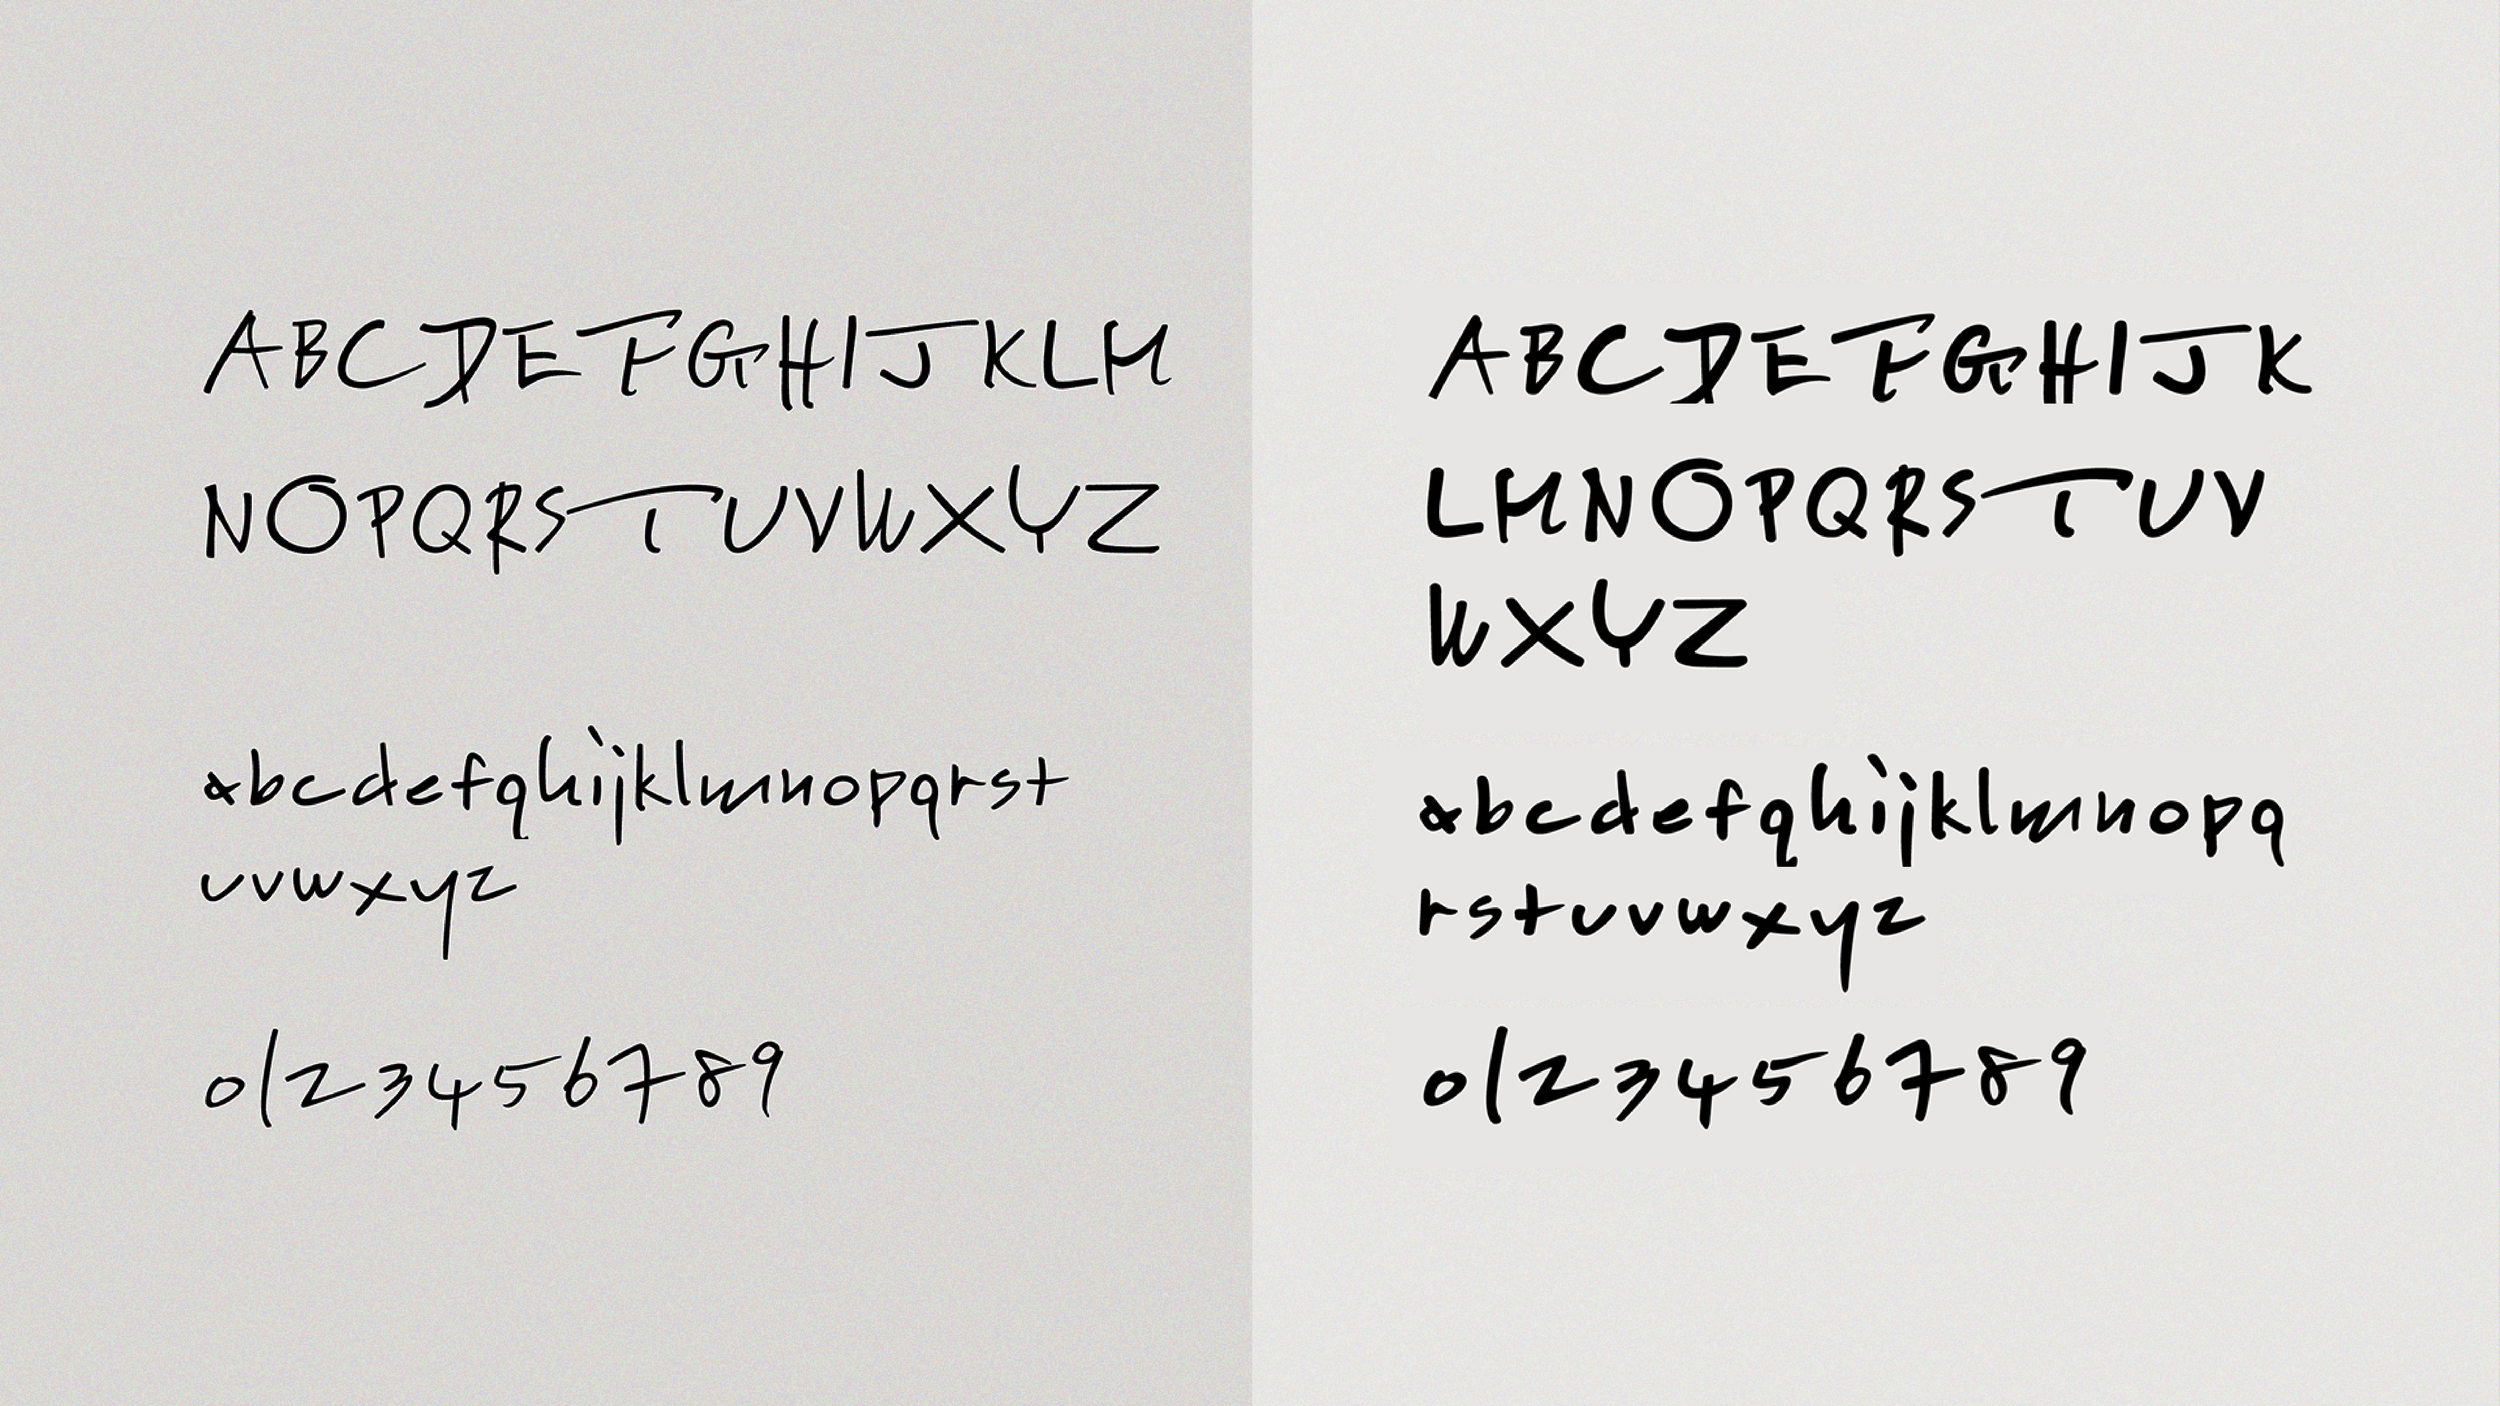 ABCDEFGHIJKLM
NOPQRSTUVWXYZ
abcdefghijklmnopqrst
uvwxyz
0123456789
ABCDEFGHIJK
LMNOPQRSTUV
WXYZ
abcdefghijklmnopq
rstuvwxyz
0123456789